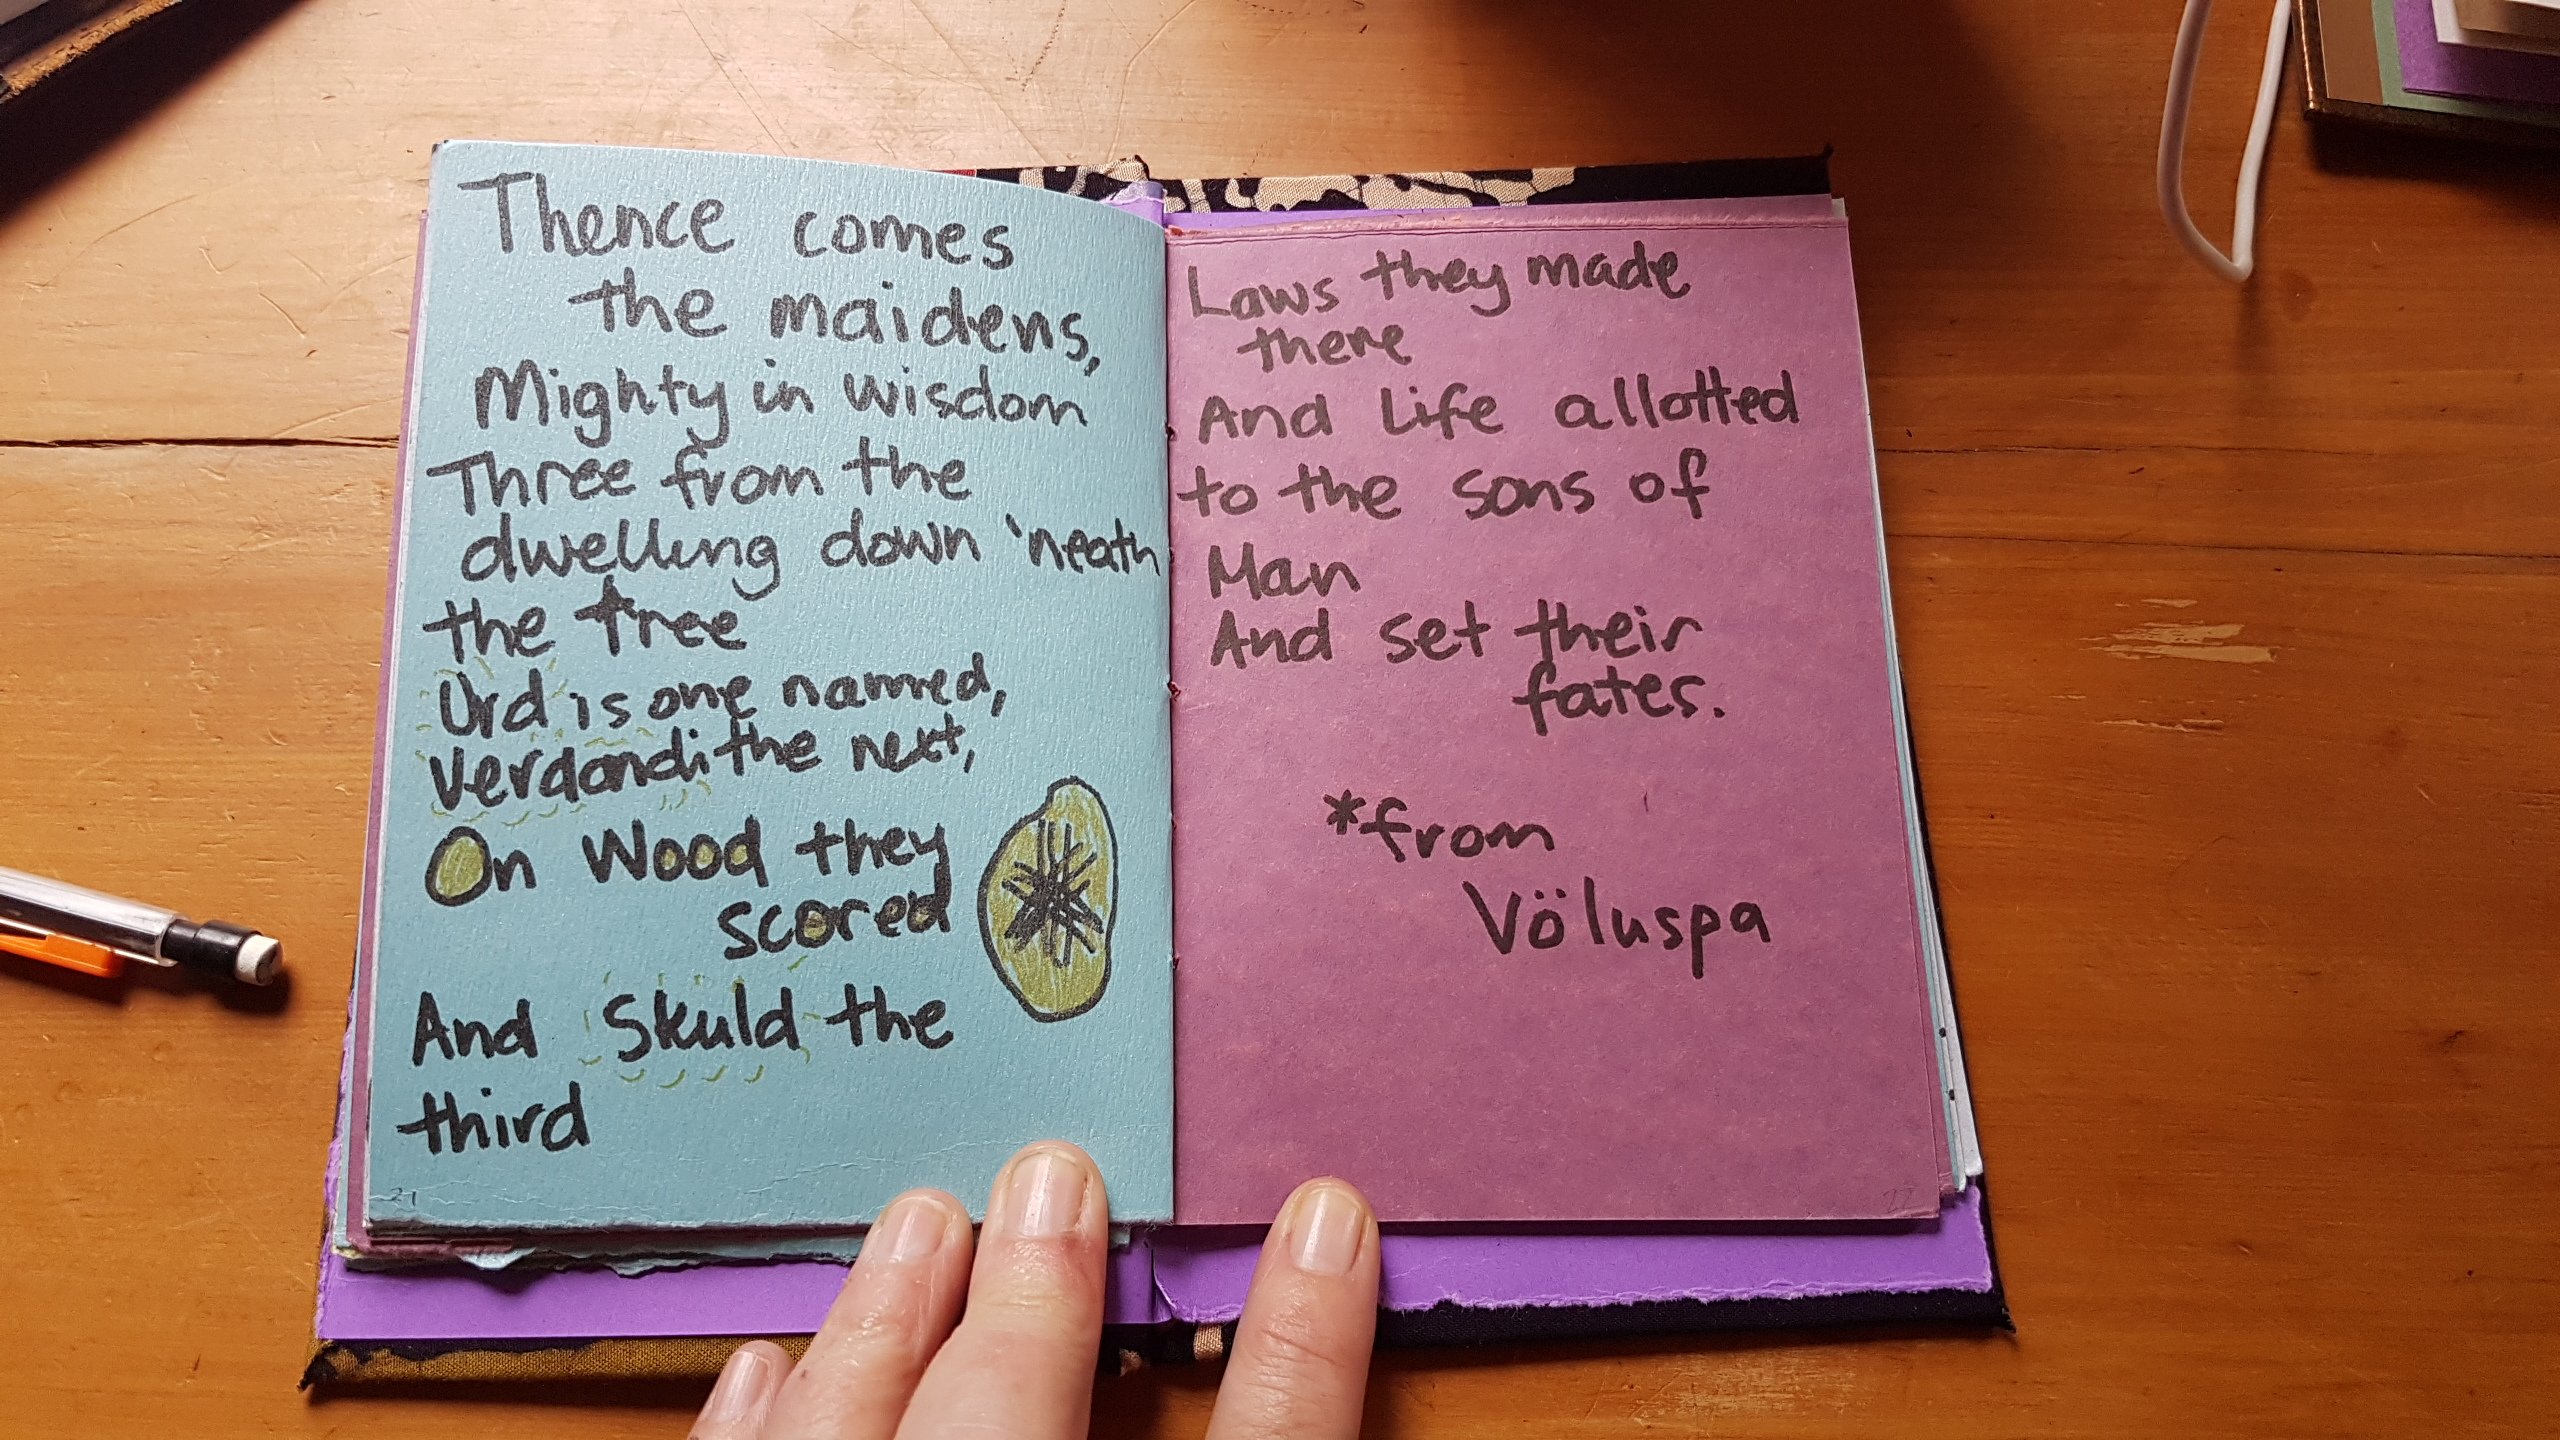 Thence comes
the maidens,
Mighty in wisdom
Three from the
dwelling down 'neath
the tree
Urd is one named,
Verdandi the next,
On Wood they
scored
And Skuld the
third
21
Laws they made
there
And Life allotted
to the sons of
Man
And set their
fates.
*from
Völuspa
22